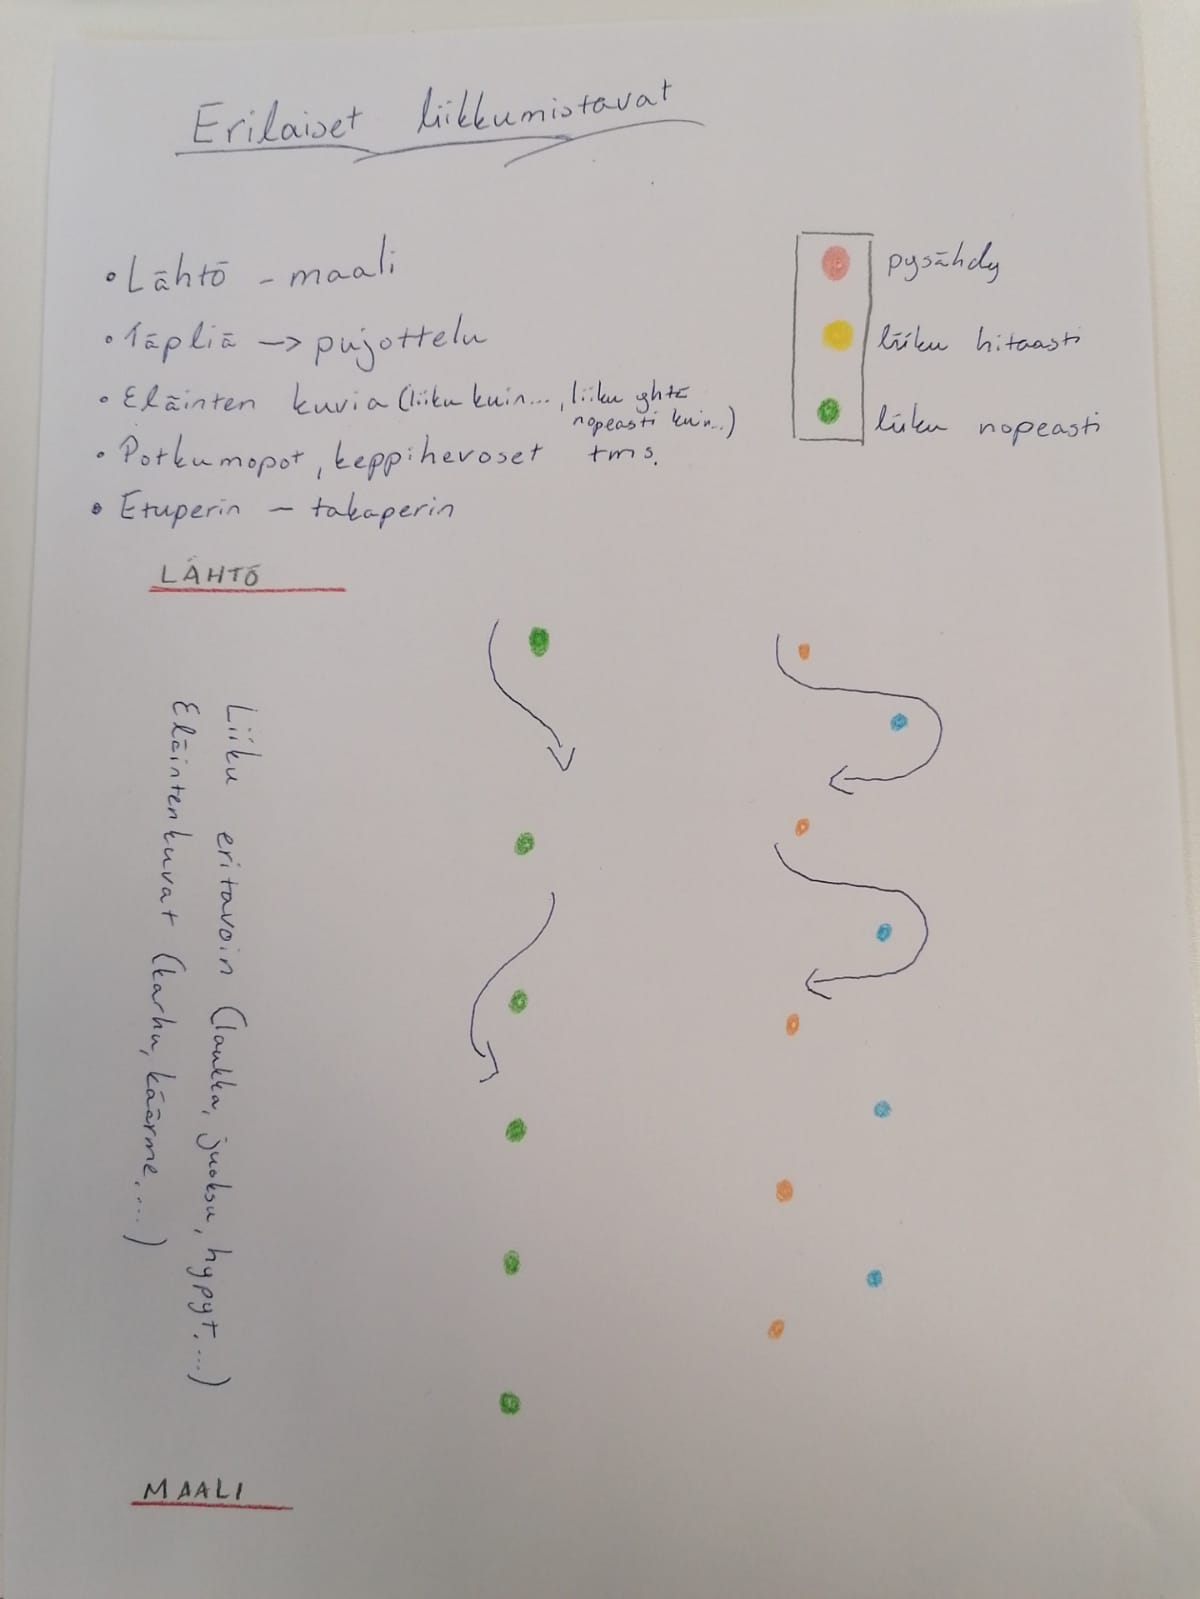 Erilaiset liikkumistavat
• Lähtö - maali
• Täpliä -> pujottelu
• Eläinten kuvia (liiku kuin..., liiku yhtä
nopeasti kuin...)
• Potkumopot, keppihevoset tms.
• Etuperin - takaperin
pysähdy
liiku hitaasti
liiku nopeasti
LÄHTÖ
Liiku eritavoin (laukka, juoksu, hypyt, ...)
Eläintenkuvat (karhu, käärme, ...)
MAALI